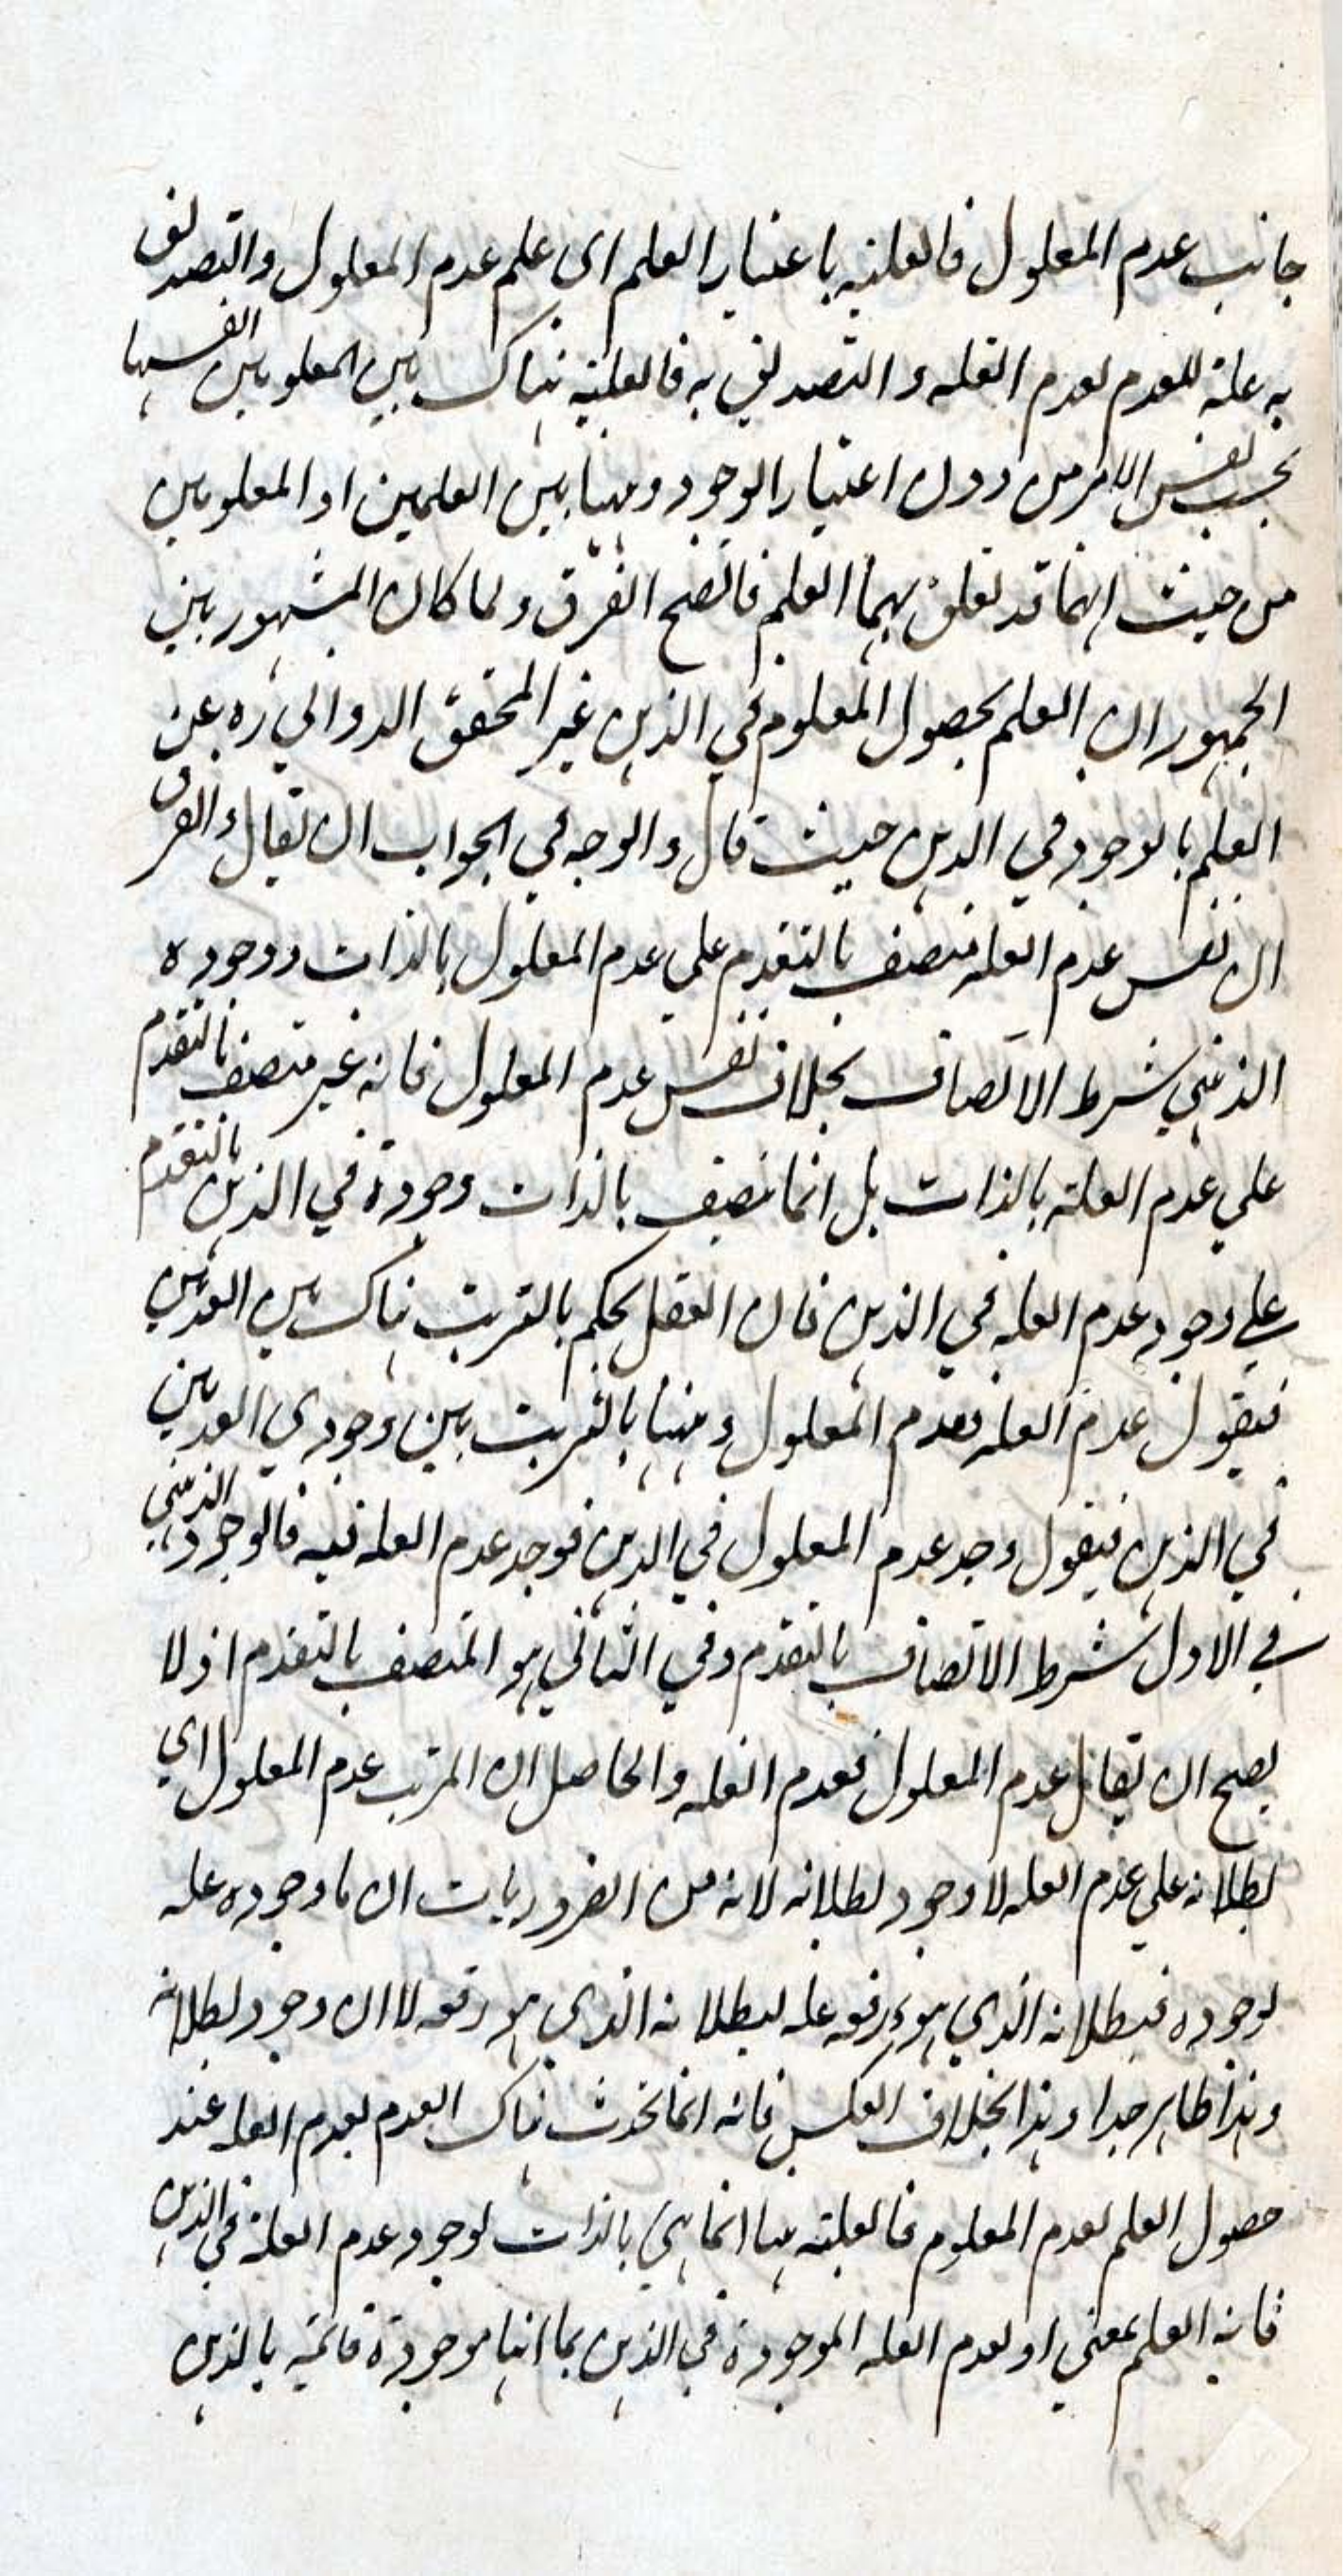 جانب عدم المعلول فالعلية باعتبار العلم اى علم عدم المعلول والتصديق
به علة للعدم لعدم العلة والتصديق به فالعلية هناك بين المعلومين انفسهما
بحسب نفس الامر من دون اعتبار الوجود وههنا بين العلمين او المعلومين
من حيث انهما قد تعلق بهما العلم فاتضح الفرق ولما كان المشهور بين
الجمهور ان العلم بحصول المعلوم في الذهن غير المحقق الدواني ره عن
العلم بالوجود في الذهن حيث قال والوجه في الجواب ان يقال والفرق
ان نفس عدم العلة متصف بالتقدم على عدم المعلول بالذات ووجوده
الذهني شرط الاتصاف بخلاف نفس عدم المعلول فانه غير متصف بالتقدم
علي عدم العلة بالذات بل انما تتصف بالذات وجوده في الذهن بالتقدم
علي وجود عدم العلة في الذهن فان العقل يحكم بالترتب هناك بين العدمين
فيقول عدم العلة فعدم المعلول وههنا بالترتب بين وجودي العدمين
في الذهن فيقول وجد عدم المعلول في الذهن فوجد عدم العلة فيه فالوجود الذهني
في الاول شرط الاتصاف بالتقدم وفي الثاني هو المتصف بالتقدم اذ لا
يصح ان يقال عدم المعلول فعدم العلة والحاصل ان المرتب عدم المعلول اي
بطلانه علي عدم العلة لا وجود بطلانه لانه من الضروريات ان ما وجوده علة
لوجوده فبطلانه الذي هو رفعه علة لبطلانه الذي هو رفعه لا ان وجود بطلانه
وهذا ظاهر جدا وهذا بخلاف العكس فانه انما تحدث هناك العدم لعدم العلة عند
حصول العلم لعدم المعلوم فالعلية ههنا انما هي بالذات لوجود عدم العلة في الذهن
فانه العلم بمعني او لعدم العلة الموجودة في الذهن بما انها موجودة قائمة بالذهن